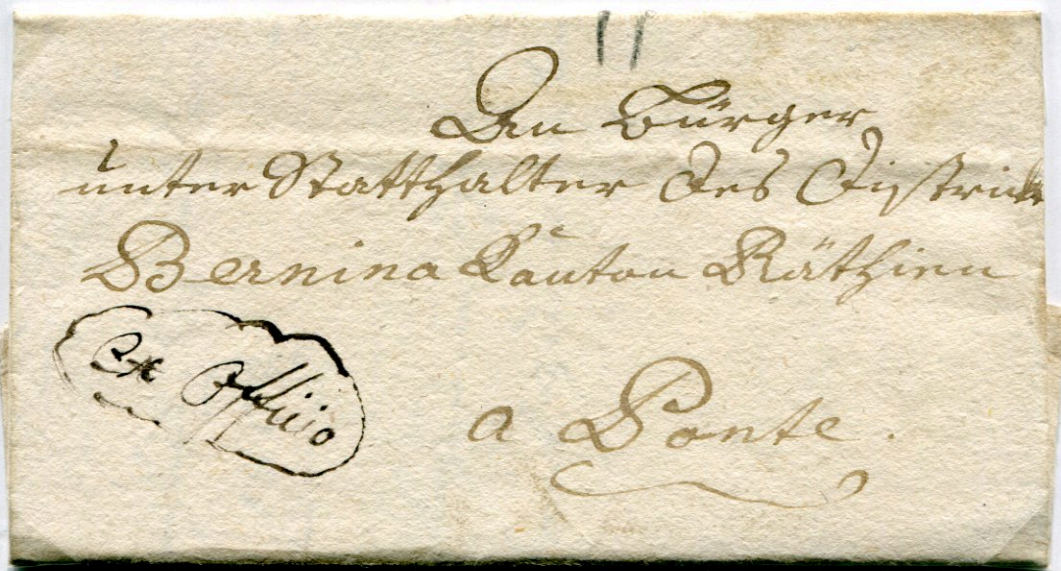 An Bürger
unter Statthalter des Districkt
Bernina Canton Räthien
Ex Officio
a Ponte.